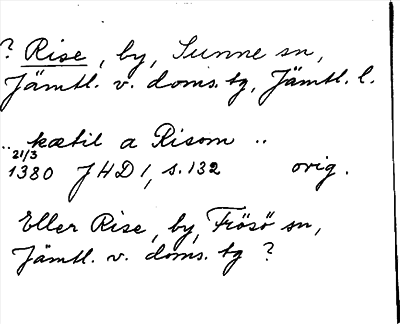 ? Rise, by, Sunne sn,
Jämtl. v. doms. tg, Jämtl. l.
.. kætil a Risom ..
21/3
1380 JHD 1, s. 132 orig.
Eller Rise, by, Frösö sn,
Jämtl. v. doms. tg ?